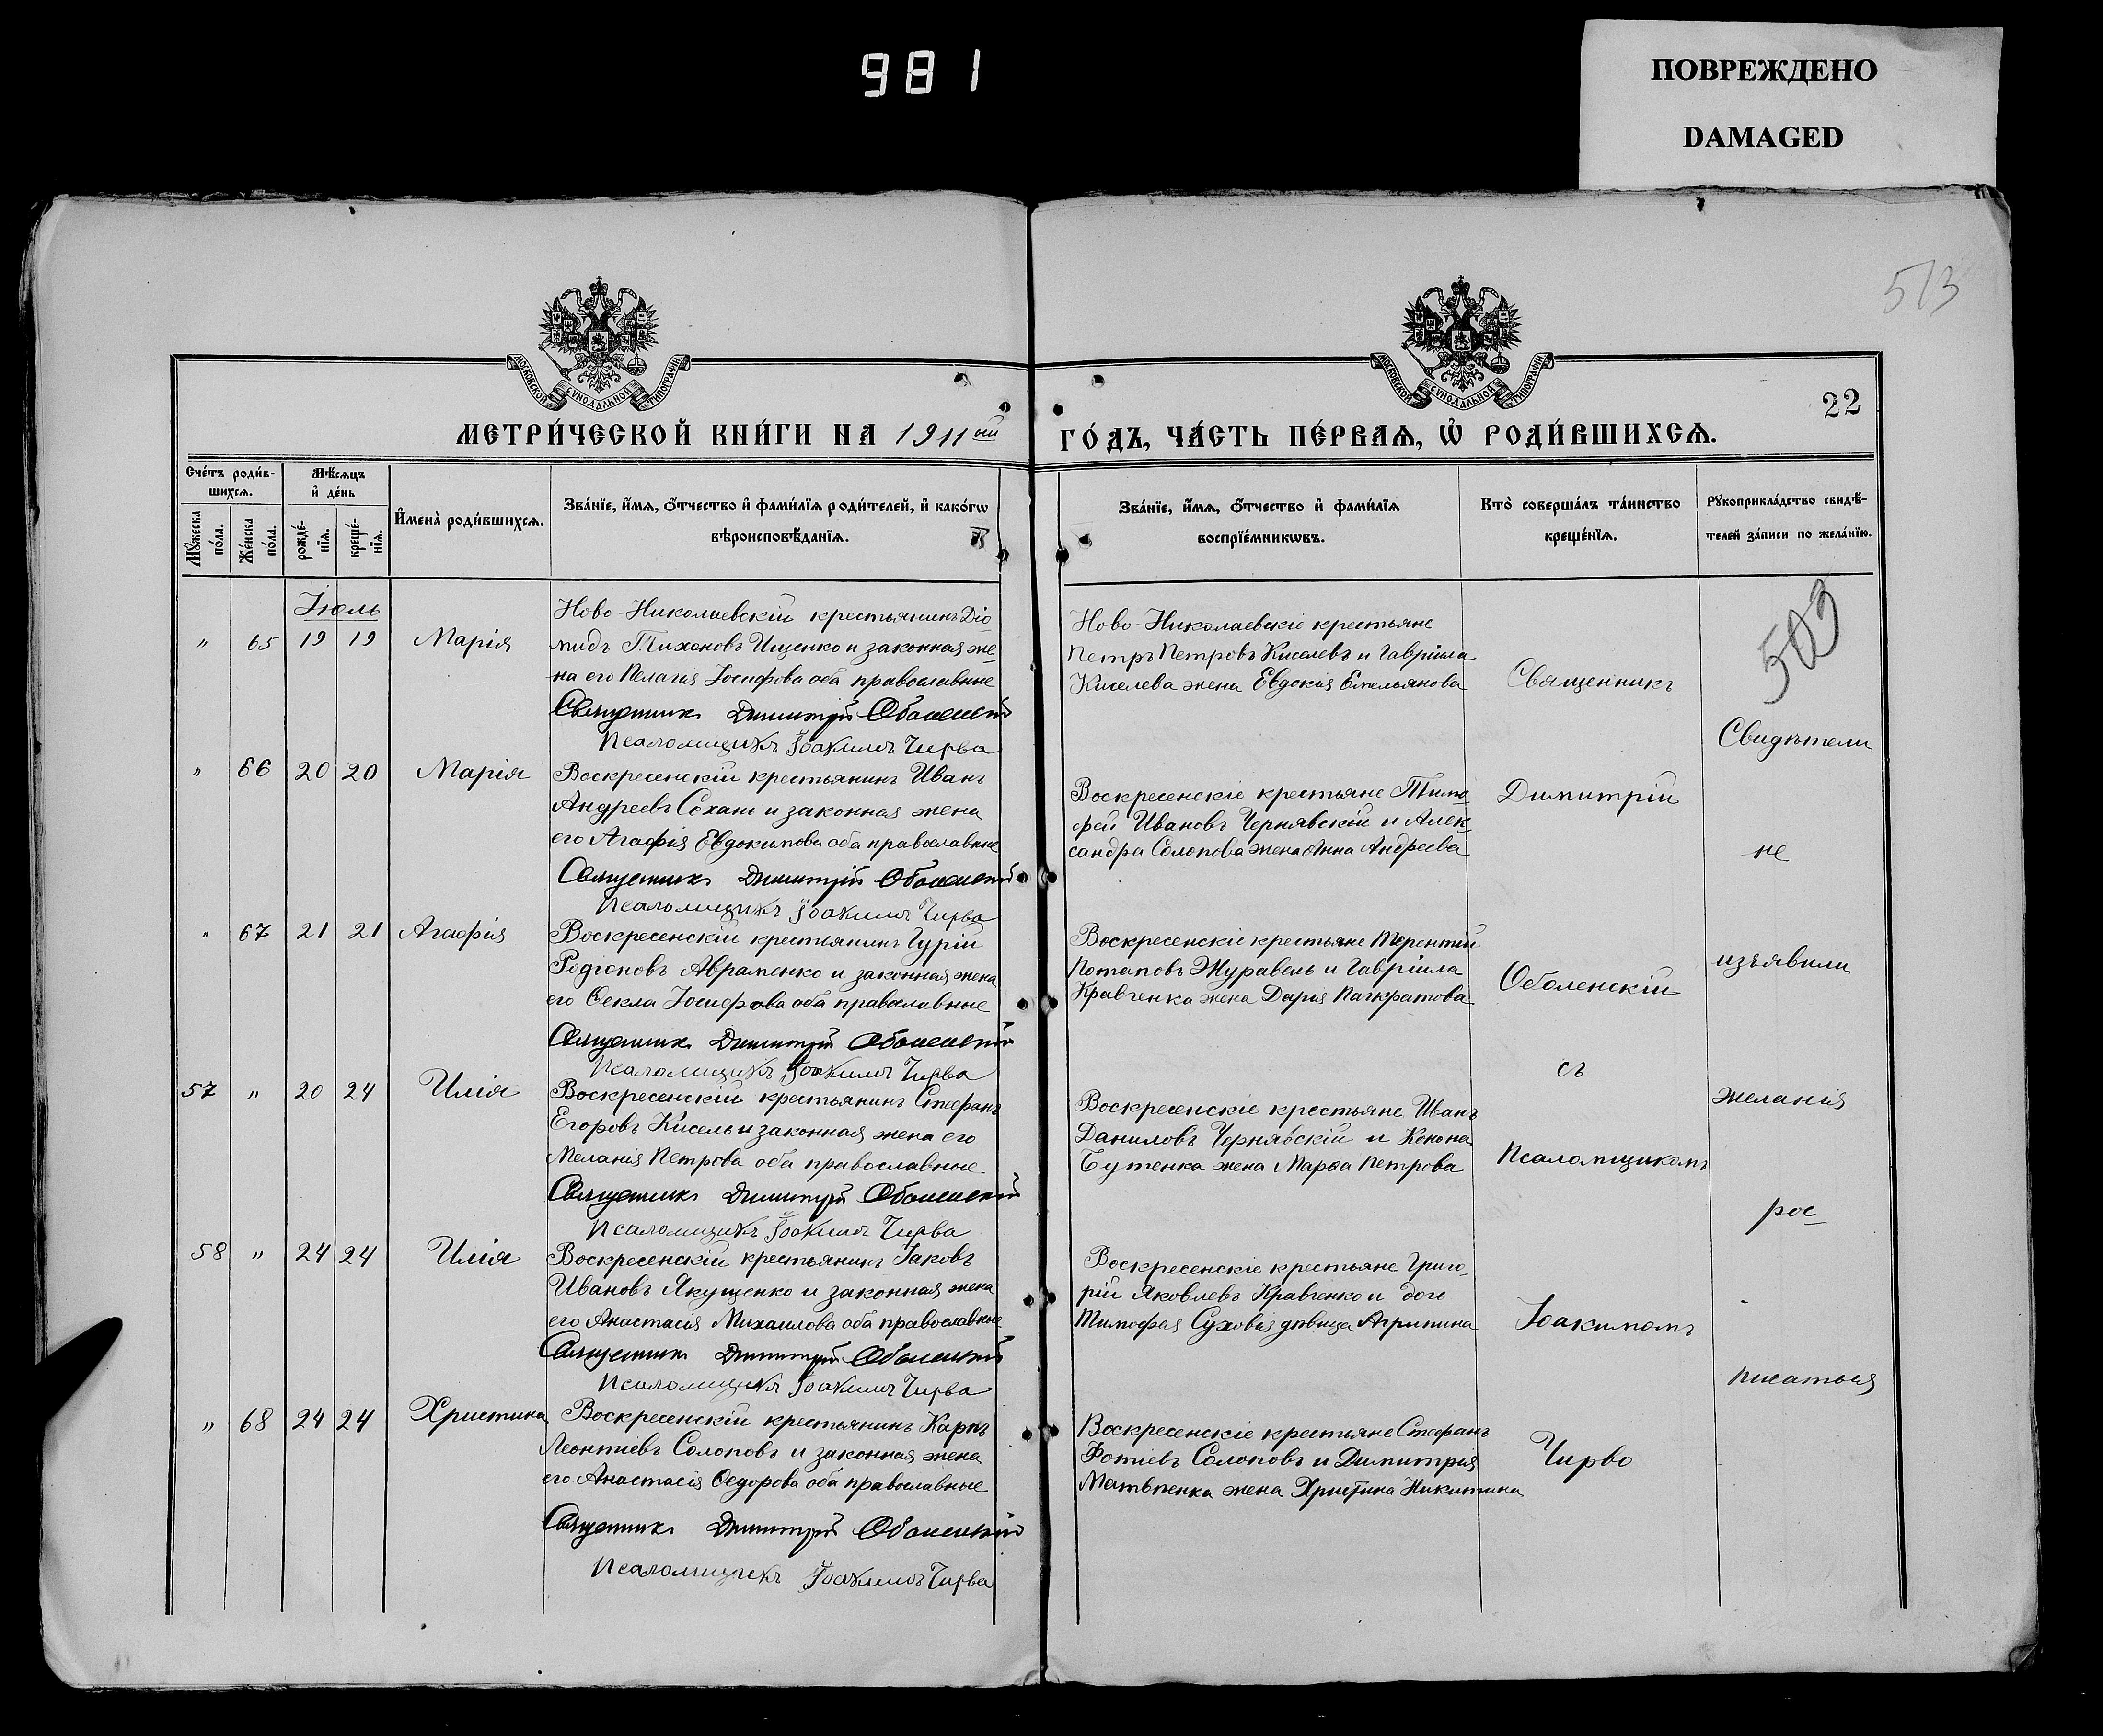 981
ПОВРЕЖДЕНО
DAMAGED
513
МОСКОВСКОЙ СѴНОДАЛЬНОЙ ТИПОГРАФІИ
МОСКОВСКОЙ СѴНОДАЛЬНОЙ ТИПОГРАФІИ
22
МЕТРИ́ЧЕСКОЙ КНИ́ГИ НА 1911ый
ГО́ДЪ, ЧА́СТЬ ПЕ́РВАѦ, Ѡ҆ РОДИ́ВШИХСѦ.
Сче́тъ роди́в-
шихсѧ.
Мѣ́сѧцъ
и҆ де́нь
Мꙋ́жеска
по́ла.
Же́нска
по́ла.
рожде́-
нїѧ.
креще́-
нїѧ.
И҆мена̀ роди́вшихсѧ.
Зва́нїе, и҆́мѧ, ѻ҆́тчество и҆ фами́лїѧ роди́телей, и҆ како́гѡ
вѣроисповѣ́данїѧ.
Зва́нїе, и҆́мѧ, ѻ҆́тчество и҆ фами́лїѧ
воспрїе́мникѡвъ.
Кто̀ соверша́лъ та́инство
креще́нїѧ.
Рꙋкоприкла́дство свидѣ́-
телей за́писи по жела́нїю.
Іюль
" 65 19 19 Марія
Ново-Николаевскій крестьянинъ Діо-
мидъ Тихоновъ Ищенко и законная же-
на его Пелагія Іосифова оба православные
Священникъ Димитрій Оболенскій
Псаломщикъ Іоакимъ Чирва
Ново-Николаевскіе крестьяне
Петръ Петровъ Киселевъ и Гавріила
Киселева жена Евдокія Емельянова
" 66 20 20 Марія
Воскресенскій крестьянинъ Иванъ
Андреевъ Сохань и законная жена
его Агафія Евдокимова оба православные
Священникъ Димитрій Оболенскій
Псаломщикъ Іоакимъ Чирва
Воскресенскіе крестьяне Тимо-
фей Ивановъ Чернявскій и Алек-
сандра Солопова жена Анна Андреева
" 67 21 21 Агафія
Воскресенскій крестьянинъ Гурій
Родіоновъ Авраменко и законная жена
его Ѳекла Іосифова оба православные
Священникъ Димитрій Оболенскій
Псаломщикъ Іоакимъ Чирва
Воскресенскіе крестьяне Терентій
Потаповъ Журавель и Гавріила
Кравченка жена Дарія Панкратова
57 " 20 24 Илія
Воскресенскій крестьянинъ Стефанъ
Егоровъ Кисель и законная жена его
Меланія Петрова оба православные
Священникъ Димитрій Оболенскій
Псаломщикъ Іоакимъ Чирва
Воскресенскіе крестьяне Иванъ
Даниловъ Чернявскій и Конона
Бутенка жена Марѳа Петрова
58 " 24 24 Илія
Воскресенскій крестьянинъ Іаковъ
Ивановъ Якущенко и законная жена
его Анастасія Михаилова оба православные
Священникъ Димитрій Оболенскій
Псаломщикъ Іоакимъ Чирва
Воскресенскіе крестьяне Григо-
рій Яковлевъ Кравченко и дочь
Тимофея Суховія дѣвица Агрипина
" 68 24 24 Христина
Воскресенскій крестьянинъ Карпъ
Леонтіевъ Солоповъ и законная жена
его Анастасія Ѳедорова оба православные
Священникъ Димитрій Оболенскій
Псаломщикъ Іоакимъ Чирва
Воскресенскіе крестьяне Стефанъ
Фотіевъ Солоповъ и Димитрія
Матвѣенка жена Христина Никитина
Священникъ
Димитрій
Оболенскій
съ
Псаломщикомъ
Іоакимомъ
Чирво
503
Свидѣтели
не
изъявили
желанія
рос-
писаться